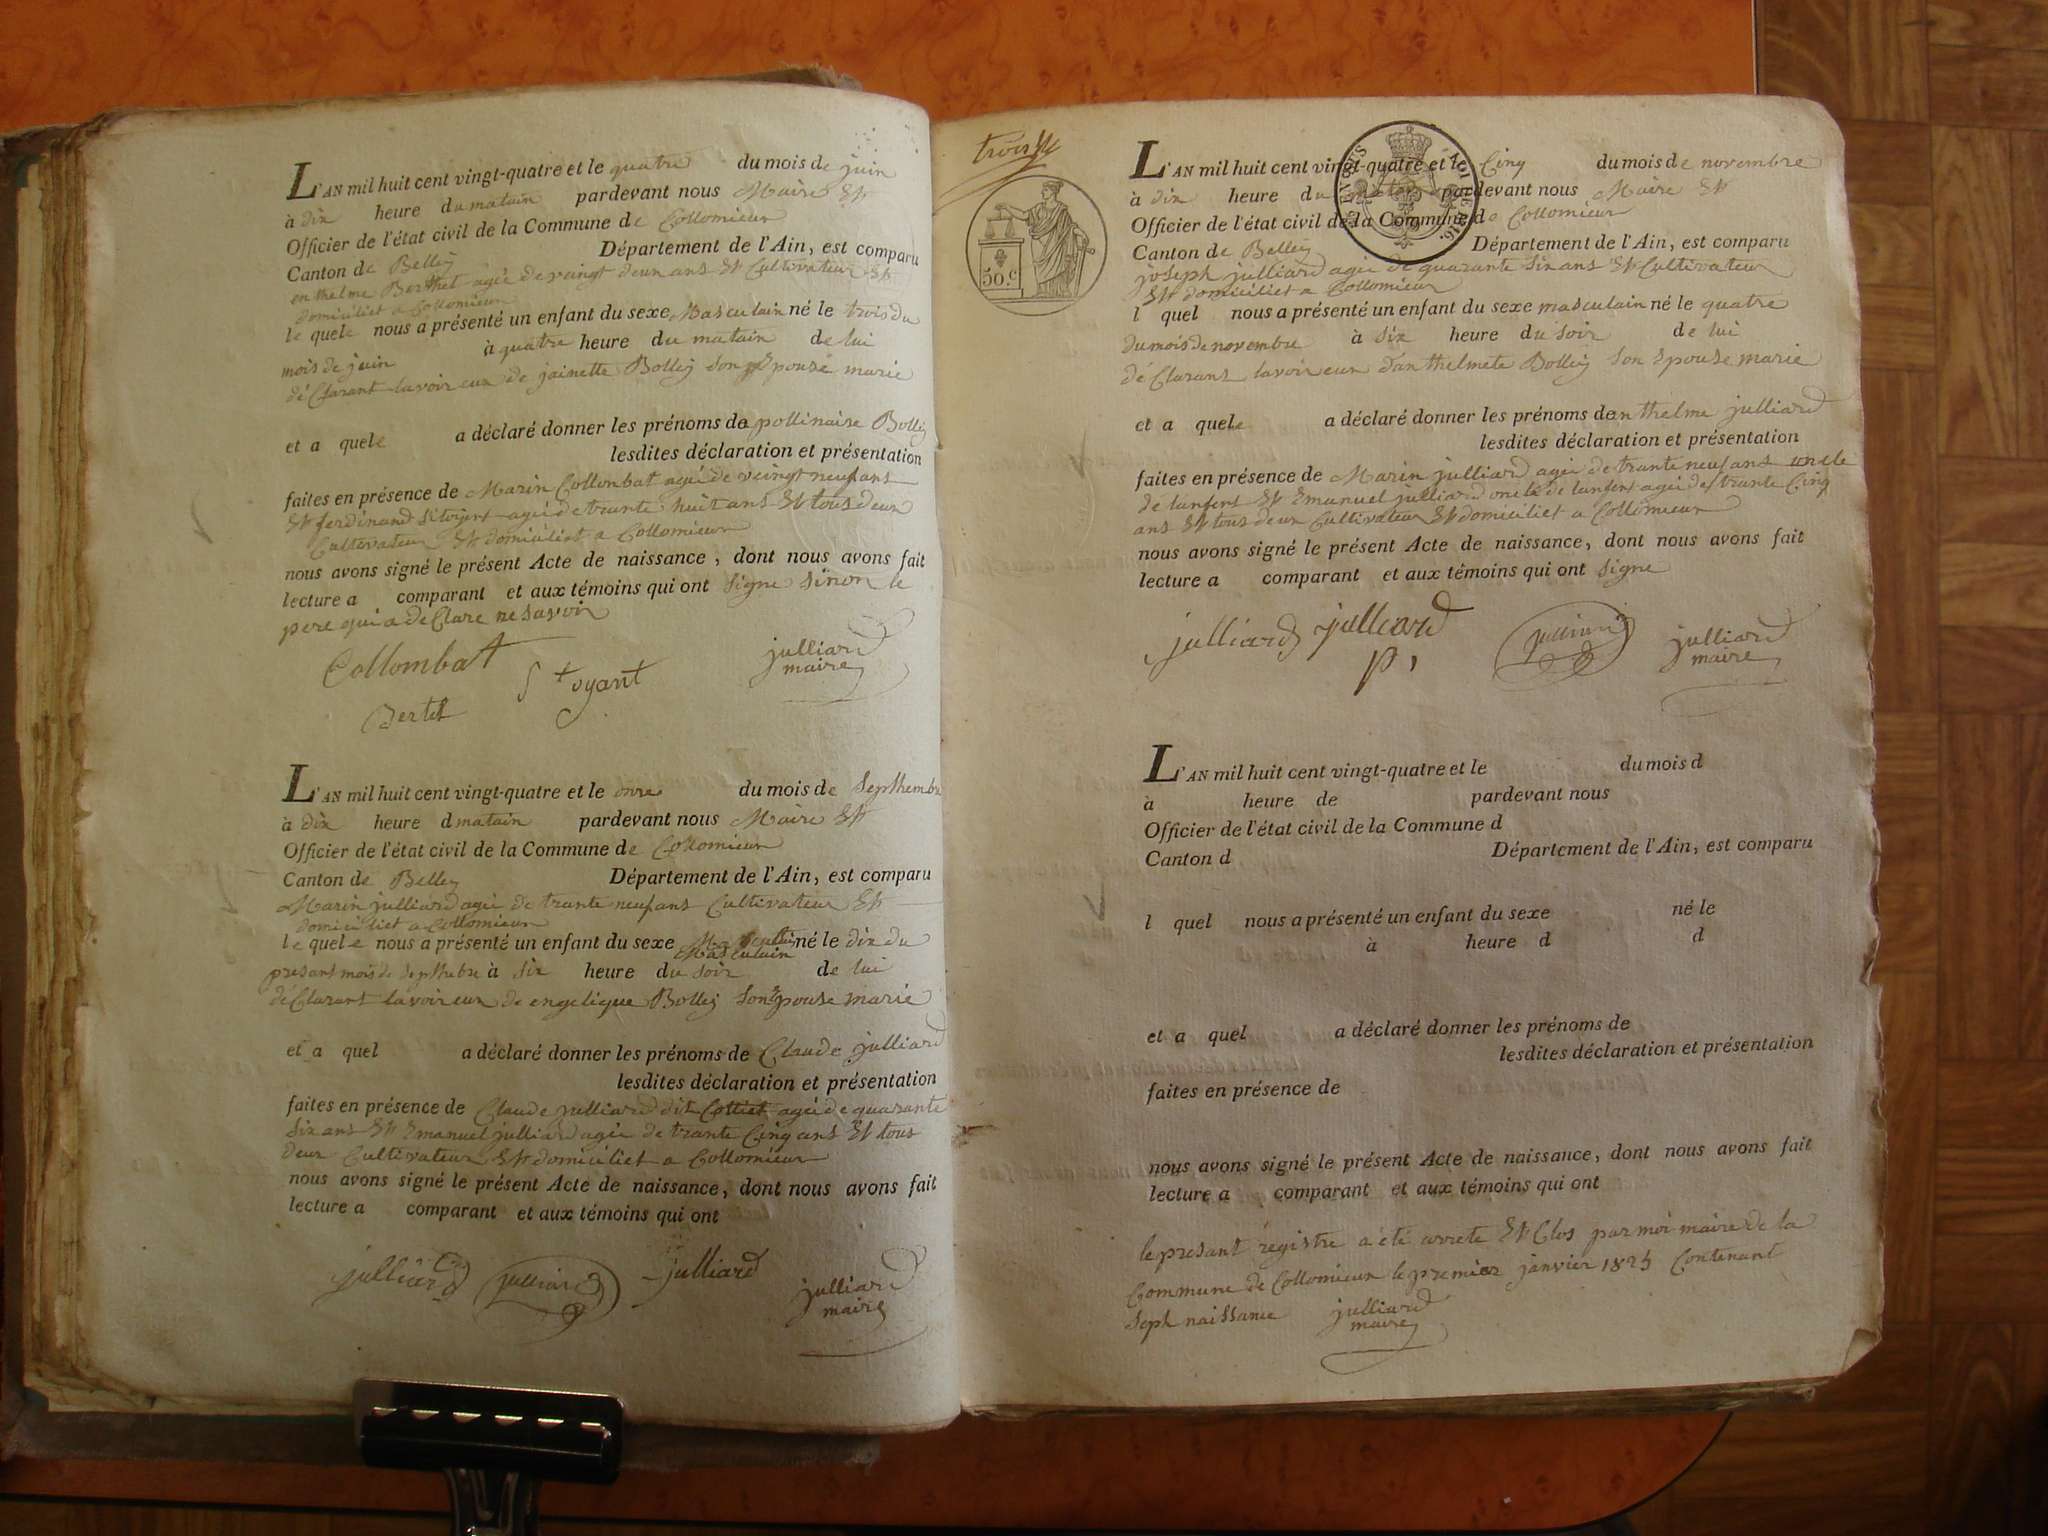 L'AN mil huit cent vingt-quatre et le quatre du mois de juin
à dix heure du matain pardevant nous Maire Et
Officier de l'état civil de la Commune de Collomieux
Canton de Belley Département de l'Ain, est comparu
enthelme Berthet agée de veingt deux ans Et Cultivateur Et
domiciliet a Collomieux
le quele nous a présenté un enfant du sexe Masculain né le trois du
mois de juin à quatre heure du matain de lui
déClarant lavoir eux de jainette Bolley son Epouse marie
et a quele a déclaré donner les prénoms de apollinaire Bolley
lesdites déclaration et présentation
faites en présence de Marin Collonbat agée de veingt neuf ans
Et ferdinand agée de trante huit ans Et tous deux
Cultivateur Et domiciliet a Collomieux
nous avons signé le présent Acte de naissance, dont nous avons fait
lecture a comparant et aux témoins qui ont Signe sinon le
pere qui a deClare ne savoir
Collombat
julliard
maire
St oyant
Bertet
L'AN mil huit cent vingt-quatre et le onze du mois de Septhembre
à dix heure d matain pardevant nous Maire Et
Officier de l'état civil de la Commune de Collomieux
Canton de Belley Département de l'Ain, est comparu
Marin julliard agée de trante neuf ans Cultivateur Et
domiciliet a Collomieux
le quele nous a présenté un enfant du sexe Masculain né le dix du
Masculain
presant mois de Septhebre à six heure du soir de lui
déClarant lavoir eux de engelique Bolley Son Epouse marie
et a quel a déclaré donner les prénoms de Claude julliard
lesdites déclaration et présentation
faites en présence de Claude julliard dit Colliet agée de quarante
six ans Et Emanuel julliard agée de trante Cinq ans Et tous
deux Cultivateur Et domiciliet a Collomieux
nous avons signé le présent Acte de naissance, dont nous avons fait
lecture a comparant et aux témoins qui ont
julliard julliard julliard
julliard
maire
trois
50.c
LOI DE 1816.
L'AN mil huit cent vingt-quatre et le Cinq du mois de novembre
à dix heure du matain pardevant nous Maire Et
Officier de l'état civil de la Commune de Collomieux
Canton de Belley Département de l'Ain, est comparu
joseph julliard agée de quarante six ans Et Cultivateur
Et domiciliet a Collomieux
l quel nous a présenté un enfant du sexe masculain né le quatre
du mois de novembre à six heure du soir de lui
déClarans lavoir eux danthelmete Bolley son Epouse marie
et a quele a déclaré donner les prénoms denthelme julliard
lesdites déclaration et présentation
faites en présence de Marin julliard agée de trante neuf ans uncle
de lanfent Et Emanuel julliard oncle de lanfent agée de trante Cinq
ans Et tous deux Cultivateur Et domiciliet a Collomieux
nous avons signé le présent Acte de naissance, dont nous avons fait
lecture a comparant et aux témoins qui ont signe
julliard julliard julliard julliard
maire
L'AN mil huit cent vingt-quatre et le du mois d
à heure de pardevant nous
Officier de l'état civil de la Commune d
Canton d Département de l'Ain, est comparu
l quel nous a présenté un enfant du sexe né le
à heure d d
et a quel a déclaré donner les prénoms de
lesdites déclaration et présentation
faites en présence de
nous avons signé le présent Acte de naissance, dont nous avons fait
lecture a comparant et aux témoins qui ont
le presant registre a été arrete Et Clos par moi maire de la
Commune de Collomieux le premier janvier 1825 Contenant
Seph naissance julliard
maire